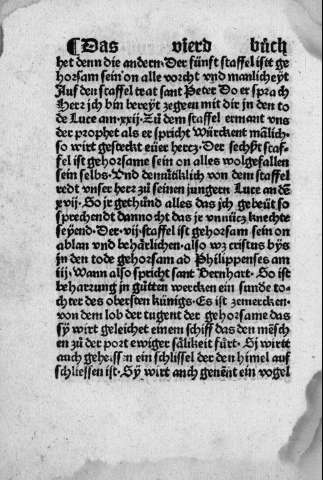 ¶Das vierd bůch
het denn die andern · Der fünft staffel ist ge
horsam sein on alle vorcht vnd manlicheyt
Auf den staffel trat sant Peter Do er sprach
Herz ich bin bereyt zegeen mit dir in den to
de Luce am · xxij · Zů dem staffel ermant vns
der prophet als er spricht Würckent mälich ·
so wirt gesteckt eüer hertz · Der sechßt staf-
fel ist gehorsame sein on alles wolgefallen
sein selbs · Vnd demütiklich von dem staffel
redt vnser herr zů seinen jungern Luce an dē
xvij · So jr gethünd alles das jch gebeüt so
sprechendt dannocht das je vnnücz knechte
seyend · Der · vij · staffel ist gehorsam sein on
ablan vnd beharlichen · also wz cristus bys
jn den tode gehorsam ad Philippenses am
iij · Wann also spricht sant Bernhart · So ist
beharrung jn gůtten wercken ein sunde to-
chter des obersten künigs · Es ist zemercken ·
von dem lob der tugent der gehorsame das
sy wirt geleichet einem schiff das den mēsch
en zů der port ewiger sälikeit fürt · Sj wirtt
auch geheissen ein schlissel der den himel auf
schliessen ist · Sÿ wirt auch genēnt ein vogel